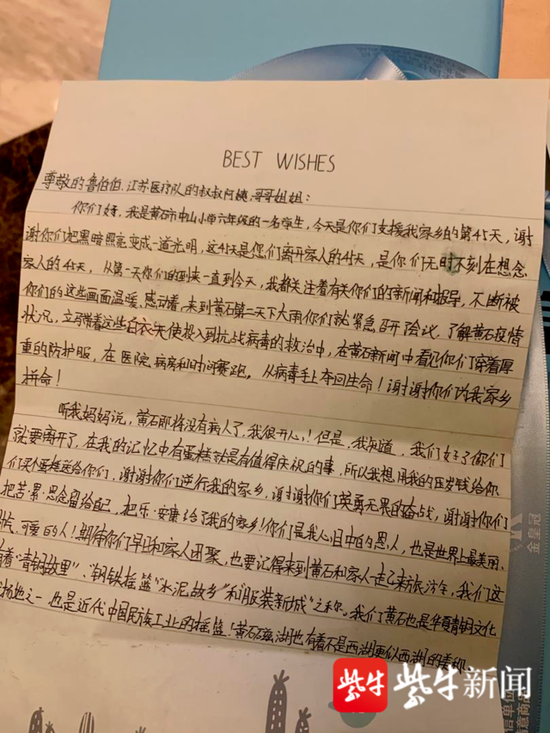 BEST WISHES
尊敬的鲁伯伯、江苏医疗队的叔叔阿姨、哥哥姐姐：
你们好，我是黄石市中山小学六年级的一名学生，今天是你们支援我家乡的第45天，谢
谢你们把黑暗照亮变成一道光明，这45天是您们离开家人的45天，是你们无时不刻在想念
家人的45天，从第一天你们的到来一直到今天，我都关注着有关你们的新闻和报导，不断被
你们的这些画面温暖、感动着，来到黄石第二天下大雨你们就紧急召开会议，了解黄石疫情
状况，立马带着这些白衣天使投入到抗战病毒的救治中，在黄石新闻中看见你们穿着厚
重的防护服，在医院病房和时间赛跑，从病毒手上夺回生命！谢谢你们为我家乡
拼命！
听我妈妈说，黄石即将没有病人了，我很开心！但是，我知道，我们好了你们
就要离开了，在我的记忆中有蛋糕就是有值得庆祝的事，所以我想用我的压岁钱给你
们买个蛋糕送给你们，谢谢你们逆行我的家乡，谢谢你们英勇无畏的奋战，谢谢你们
把苦、累、思念留给自己，把乐、安康给了我的家乡！你们是我心目中的恩人，也是世界上最美丽、
可爱的人！期待你们早日和家人团聚，也要记得来到黄石和家人一起来旅游，我们这
有着"青铜故里"、"钢铁摇篮"、"水泥故乡"和"服装新城"之称，我们黄石也是华夏青铜文化
之一，也是近代中国民族工业的摇篮，黄石磁湖也有着不是西湖更似西湖的美称
金皇冠
紫牛 紫牛新闻